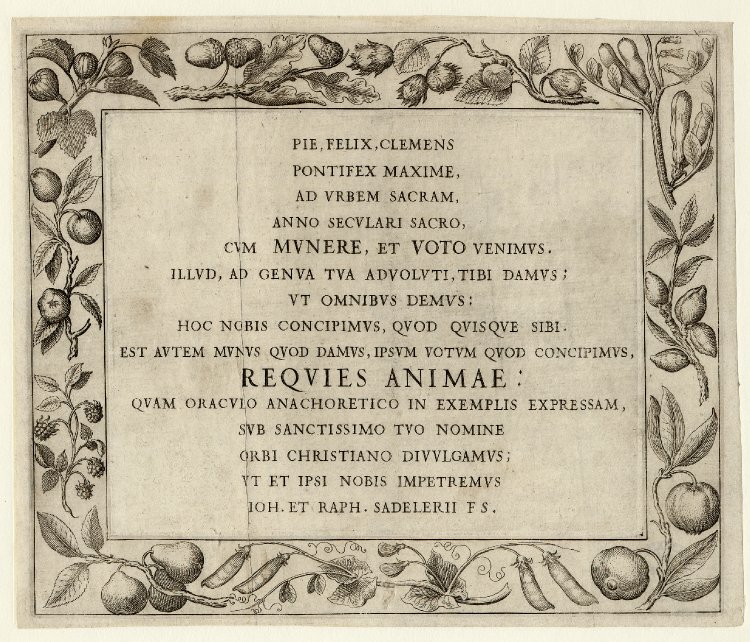 PIE, FELIX, CLEMENS
PONTIFEX MAXIME,
AD VRBEM SACRAM,
ANNO SECVLARI SACRO,
CVM MVNERE, ET VOTO VENIMVS.
ILLVD, AD GENVA TVA ADVOLVTI, TIBI DAMVS;
VT OMNIBVS DEMVS:
HOC NOBIS CONCIPIMVS, QVOD QVISQVE SIBI.
EST AVTEM MVNVS QVOD DAMVS, IPSVM VOTVM QVOD CONCIPIMVS,
REQVIES ANIMAE:
QVAM ORACVLO ANACHORETICO IN EXEMPLIS EXPRESSAM,
SVB SANCTISSIMO TVO NOMINE
ORBI CHRISTIANO DIVVLGAMVS;
VT ET IPSI NOBIS IMPETREMVS
IOH. ET RAPH. SADELERII F S.